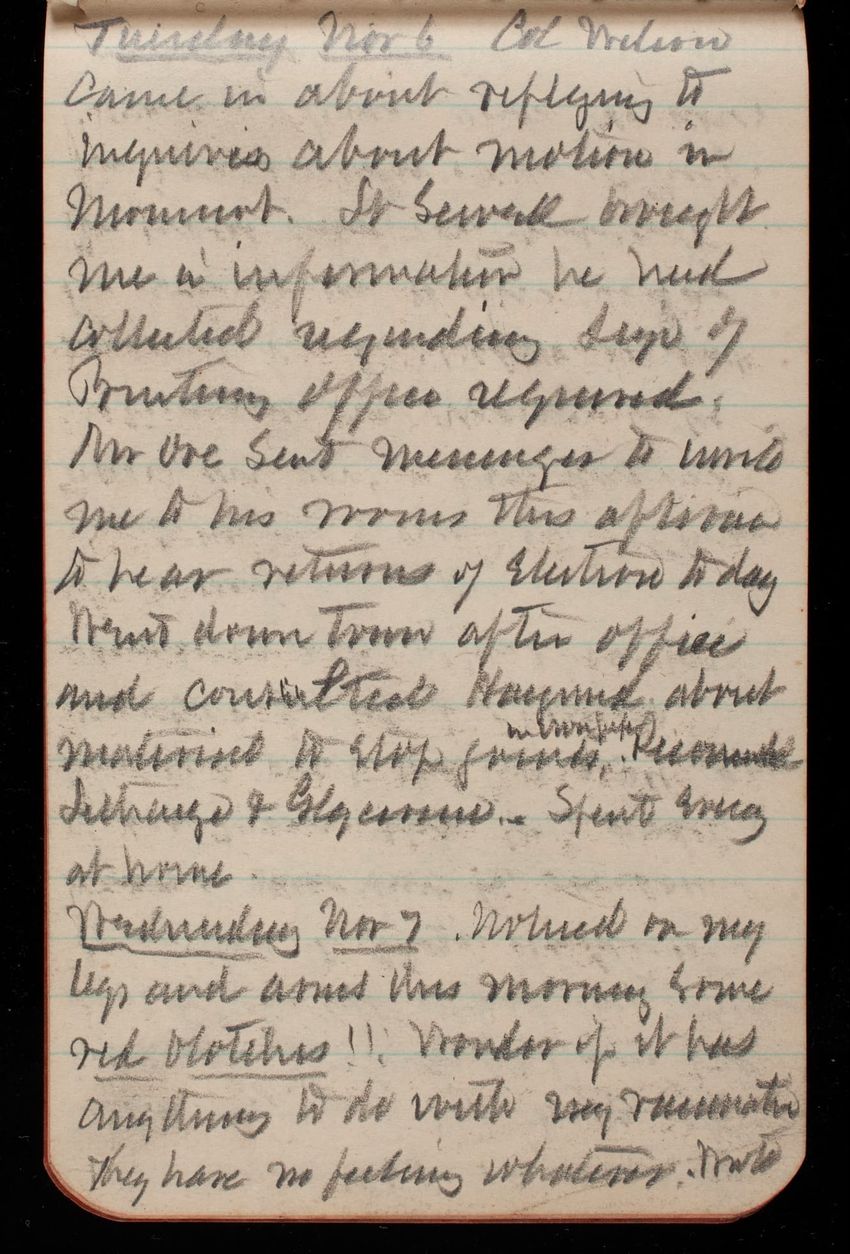 Tuesday Nov 6 Col Wilson
came in about replying to
inquiries about motion in
Monument. Lt Sewell brought
me in information he had
collected regarding size of
Printing office required.
Mr Orr sent messenger to invite
me to his rooms this afternoon
to hear returns of Election today
Went down town after office
and consulted about
material to stop joints, in
Litharge & Glycerine. - Spent Eveng
at home
Wednesday Nov 7. Noticed on my
legs and arms this morning some
red blotches!!. Wonder if it has
anything to do with my vaccination
They have no feeling whatever. Wrote